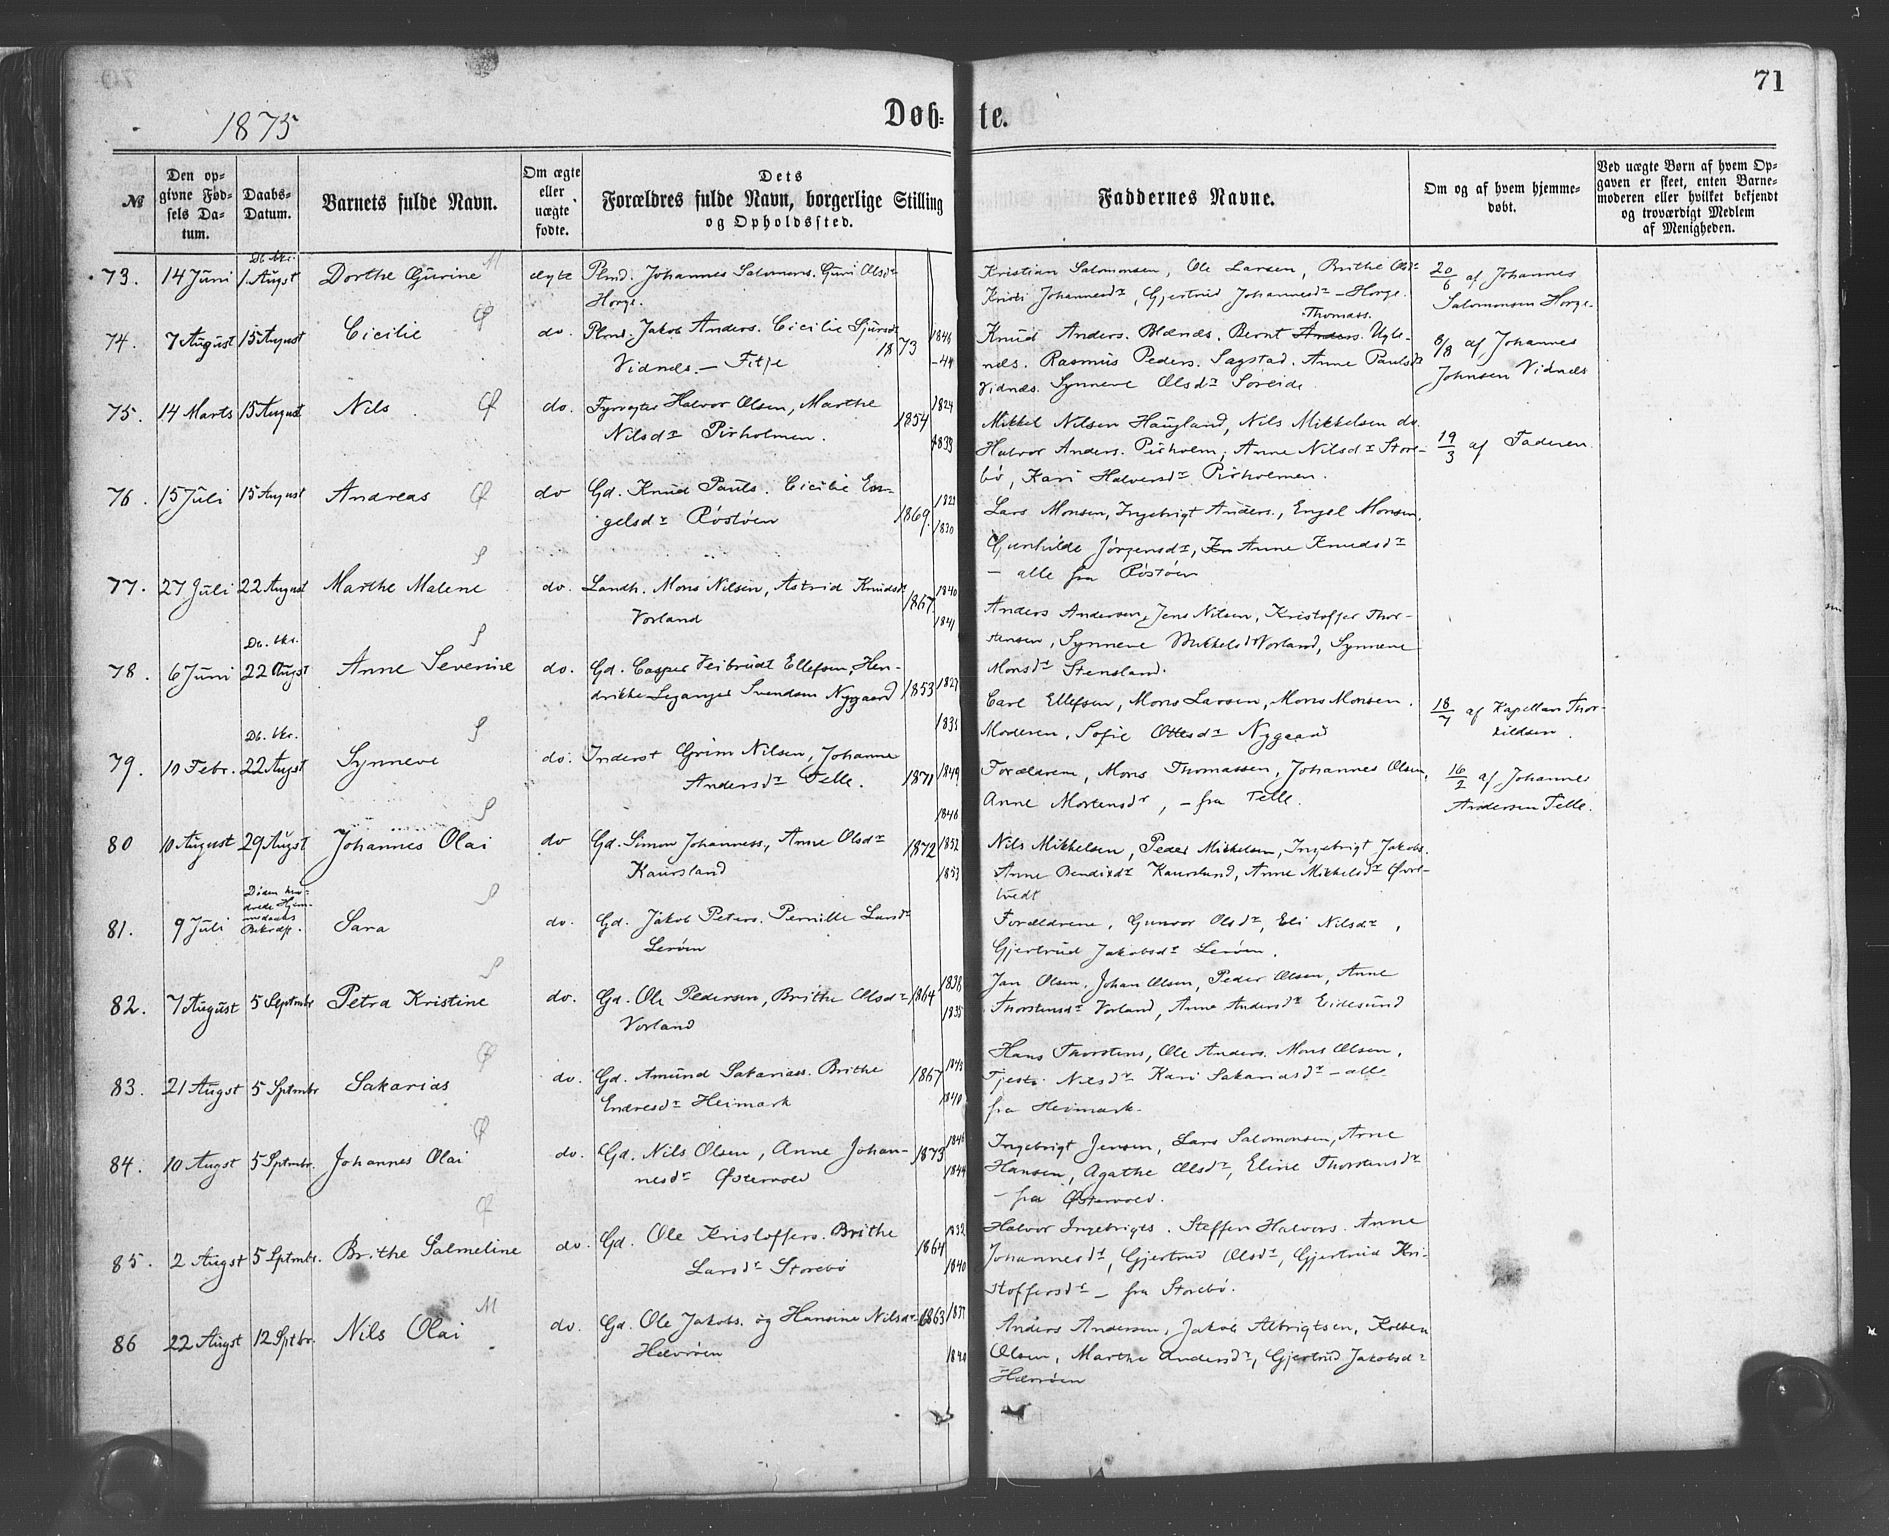 71
1875
Døb-te.
№
Den opgivne Fødsels Datum.
Daabs-Datum.
Barnets fulde Navn.
Om ægte eller uægte fødte.
Dets Forældres fulde Navn, borgerlige Stilling og Opholdssted.
Faddernes Navne.
Om og af hvem hjemmedøbt.
Ved uægte Børn af hvem Opgaven er skeet, enten Barnemoderen eller hvilket bekjendt og troværdigt Medlem af Menigheden.
73. 14 Juni 1 Augst Dorthe Gurine M ægte Plmd. Johannes Salomons. Guri Olsdr
Horge.
Kristian Salomonsen, Ole Larsen, Brithe Olsdr
Kristi Johannesdr, Gjertrud Johannesdr – Horge.
20/6 af Johannes
Salomonsen Horge.
74. 7 August 15 August Cicilie Ø do. Plmd. Jakob Anders. Cicilie Sjursdr
Vidnæs. – Fitje 1873 1846
–44
Thomass.
Knud Anders. Blænæs. Bernt Anders. Ugle-
næs. Rasmus Peders. Sagstad. Anne Paulsdr
Vidnæs. Synneve Olsdr Soreide.
8/8 af Johannes
Johnsen Vidnæs
75. 14 Marts 15 August Nils Ø do. Fyrvogter Halvor Olsen, Marthe
Nilsdr Pirholmen. 1854 1824
1833
Mikkel Nilsen Haugland, Nils Mikkelsen do.
Halvor Anders. Pirholm, Anne Nilsdr Store-
bø, Kari Halvorsdr Pirholmen.
19/3 af Faderen
76. 15 Juli 15 August Andreas Ø do Gd. Knud Pauls. Cicilie En-
gelsdr Røstøen 1869.
1830
Lars Monsen, Ingebrigt Anders., Engel Monsen.
Gunhilde Jørgensdr, Anne Knudsdr
– alle fra Røstøen
77. 27 Juli 22 August Marthe Malene S do. Landh. Mons Nilsen, Astrid Knudsdr
Vorland 1867 1840
1841
Anders Andersen, Jens Nilsen, Kristoffer Thor-
stensen, Synneve Mikkelsdr Vorland, Synneve
Monsdr Stensland.
78. 6 Juni 22 Augst Anne Severine S do. Gd. Casper Veibrudt Ellefsen, Hen-
drikke Leganger Svendsen Nygaard 1853 1827
1831
Carl Ellefsen, Mons Larsen, Mons Monsen.
Moderen, Sofie Ottesdr Nygaard
18/7 af Kapellan Thor-
kildsen.
79. 10 Febr. 22 Augst Synneve S do. Inderst Grim Nilsen, Johanne
Andersdr Telle. 1870 1849
1846
Forældrene, Mons Thomassen, Johannes Olsen,
Anne Mortensdr, – fra Telle.
16/2 af Johannes
Andersen Telle.
80 10 August 29 Augst Johannes Olai S do Gd. Simon Johanness, Anne Olsdr
Kaursland 1872 1852
1853
Nils Mikkelsen, Peder Mikkelsen, Ingebrigt Jakobs.
Anne Bendixdr Kaursland, Anne Mikkelsdr Øvre-
tvedt
81. 9 Juli Døden hin-
drede Hjem-
medaabs
Bekræft. Sara S do. Gd. Jakob Peters. Pernille Larsdr
Lerøen
Forældrene, Gunvor Olsdr, Eli Nilsdr,
Gjertrud Jakobsdr Lerøen.
82. 7 August 5 Septmbr Petra Kristine S do. Gd. Ole Pedersen, Brithe Olsdr
Vorland 1864 1838
1835
Jan Olsen, Johan Olsen, Peder Olsen, Anne
Thorstensdr Vorland, Anne Andersdr Eidesund
83. 21 Augst 5 Sptmbr Sakarias Ø do. Gd. Amund Sakariass. Brithe
Endresdr Heimark 1867 1843
1840
Hans Thorstens, Ole Anders. Mons Olsen,
Nilsdr Kari Sakariasdr – alle
fra Heimark.
84. 10 Augst 5 Sptmbr. Johannes Olai Ø do. Gd. Nils Olsen, Anne Johan-
nesdr Østervold 1873 1846
1844
Ingebrigt Jensen, Lars Salomonsen, Arne
Hansen, Agathe Olsdr, Eline Thorstensdr
– fra Østervold.
85. 2 Augst 5 Sptmbr. Brithe Salmeline Ø do. Gd. Ole Kristoffers. Brithe
Larsdr Storebø 1864 1832
1840
Halvor Ingebrigts. Steffen Halvors. Anne
Johannesdr, Gjertrud Olsdr, Gjertrud Kri-
stoffersdr – fra Storebø.
86 22 Augst 12 Sptbr. Nils Olai M do. Gd. Ole Jakobs. og Hansine Nilsdr
Hævrøen 1863
1840
Anders Andersen, Jakob Albrigtsen, Kolben
Olsen, Marthe Andersdr, Gjertrud Jakobsdr
Hævrøen